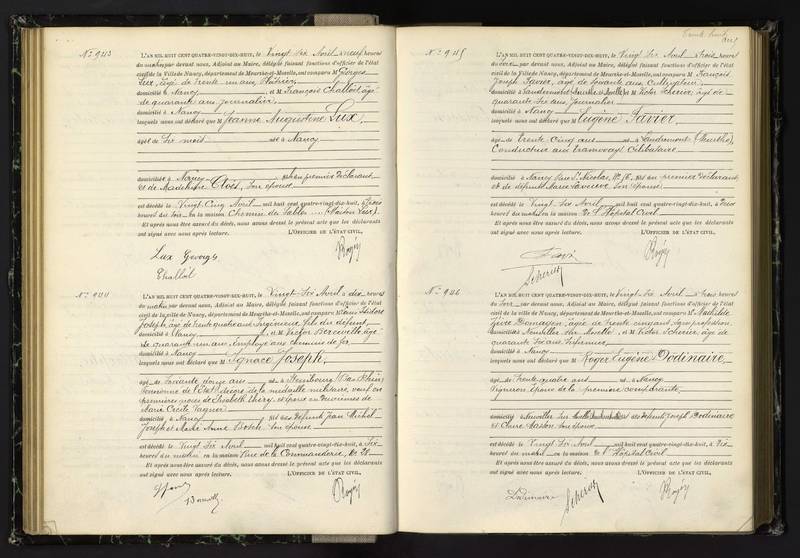 N° 943
L'AN MIL HUIT CENT QUATRE-VINGT-DIX-HUIT, le Vingt Six Avril à neuf heures
du matin par devant nous, Adjoint au Maire, délégué faisant fonctions d'officier de l'état
civil de la Ville de Nancy, département de Meurthe-et-Moselle, ont comparu M Georges
Lux, âgé de trente un ans,
domicilié à Nancy et M François Challot, âgé
de quarante ans journalier
domicilié à Nancy
lesquels nous ont déclaré que M Jeanne Augustine Lux,
âgé de Six mois né à Nancy
domicilié à Nancy, du premier déclarant
et de Madeleine, son épouse
est décédé le Vingt Cinq Avril mil huit cent quatre-vingt-dix-huit, à
heures du soir en la maison Chemin du Sables (Maison Lux).
Et après nous être assuré du décès, nous avons dressé le présent acte que les déclarants
ont signé avec nous après lecture. L'OFFICIER DE L'ÉTAT CIVIL,
Lux Georges
Challot
N° 944
L'AN MIL HUIT CENT QUATRE-VINGT-DIX-HUIT, le Vingt-Six Avril à dix heures
du matin par devant nous, Adjoint au Maire, délégué faisant fonctions d'officier de l'état
civil de la ville de Nancy, département de Meurthe-et-Moselle, ont comparu M Isidore
Joseph, âgé de trente quatre ans Ingénieur fils du défunt,
domicilié à Nancy et M
de quarante un ans, employé au chemin de fer
domicilié à Nancy
lesquels nous ont déclaré que M Ignace Joseph,
âgé de Soixante douze ans né à (Bas Rhin)
de l'Etat décoré de la médaille militaire, veuf en
premières noces de Elisabeth et époux en deuxièmes de
Marie Cécile Vagner
domicilié à Nancy fils des défunts Jean Michel
Joseph et Marie Anne son épouse
est décédé le Vingt Six Avril mil huit cent quatre-vingt-dix-huit, à Six
heures du matin en la maison Rue de la Commanderie, N° 28
Et après nous être assuré du décès, nous avons dressé le présent acte que les déclarants
ont signé avec nous après lecture. L'OFFICIER DE L'ÉTAT CIVIL,
N° 945
L'AN MIL HUIT CENT QUATRE-VINGT-DIX-HUIT, le Vingt Six Avril à trois heures
du Soir par devant nous, Adjoint au Maire, délégué faisant fonctions d'officier de l'état
civil de la Ville de Nancy, département de Meurthe-et-Moselle, ont comparu M François
Joseph Favier, âgé de soixante ans Cultivateur
domicilié à et M Victor Scherier, âgé de
quarante Six ans Journalier
domicilié à Nancy
lesquels nous ont déclaré que M Eugène Favier,
âgé de trente Cinq ans né à (Meurthe),
Conducteur aux tramways Célibataire
domicilié à Nancy Rue St Nicolas, N° 76, fils du premier déclarant
et de défunte Marie son épouse
est décédé le Vingt Six Avril mil huit cent quatre-vingt-dix-huit, à
heures du matin en la maison de l'Hôpital Civil
Et après nous être assuré du décès, nous avons dressé le présent acte que les déclarants
ont signé avec nous après lecture. L'OFFICIER DE L'ÉTAT CIVIL,
N° 946
L'AN MIL HUIT CENT QUATRE-VINGT-DIX-HUIT, le Vingt-Six Avril à trois heures
du Soir par devant nous, Adjoint au Maire, délégué faisant fonctions d'officier de l'état
civil de la ville de Nancy, département de Meurthe-et-Moselle, ont comparu Mathilde
âgée de trente cinq ans, Sans profession
domiciliée à Neuviller sur Moselle et M Victor Scherier, âgé de
quarante Six ans Infirmier
domicilié à Nancy
lesquels nous ont déclaré que M Roger Eugène Dodinaire,
âgé de trente quatre ans né à Nancy
Vigneron époux de la première comparante,
domicilié à Neuviller sur fils des défunts Joseph Dodinaire
et Claire son épouse
est décédé le Vingt Six Avril mil huit cent quatre-vingt-dix-huit, à
heures du matin en la maison de l'Hôpital Civil
Et après nous être assuré du décès, nous avons dressé le présent acte que les déclarants
ont signé avec nous après lecture. L'OFFICIER DE L'ÉTAT CIVIL,